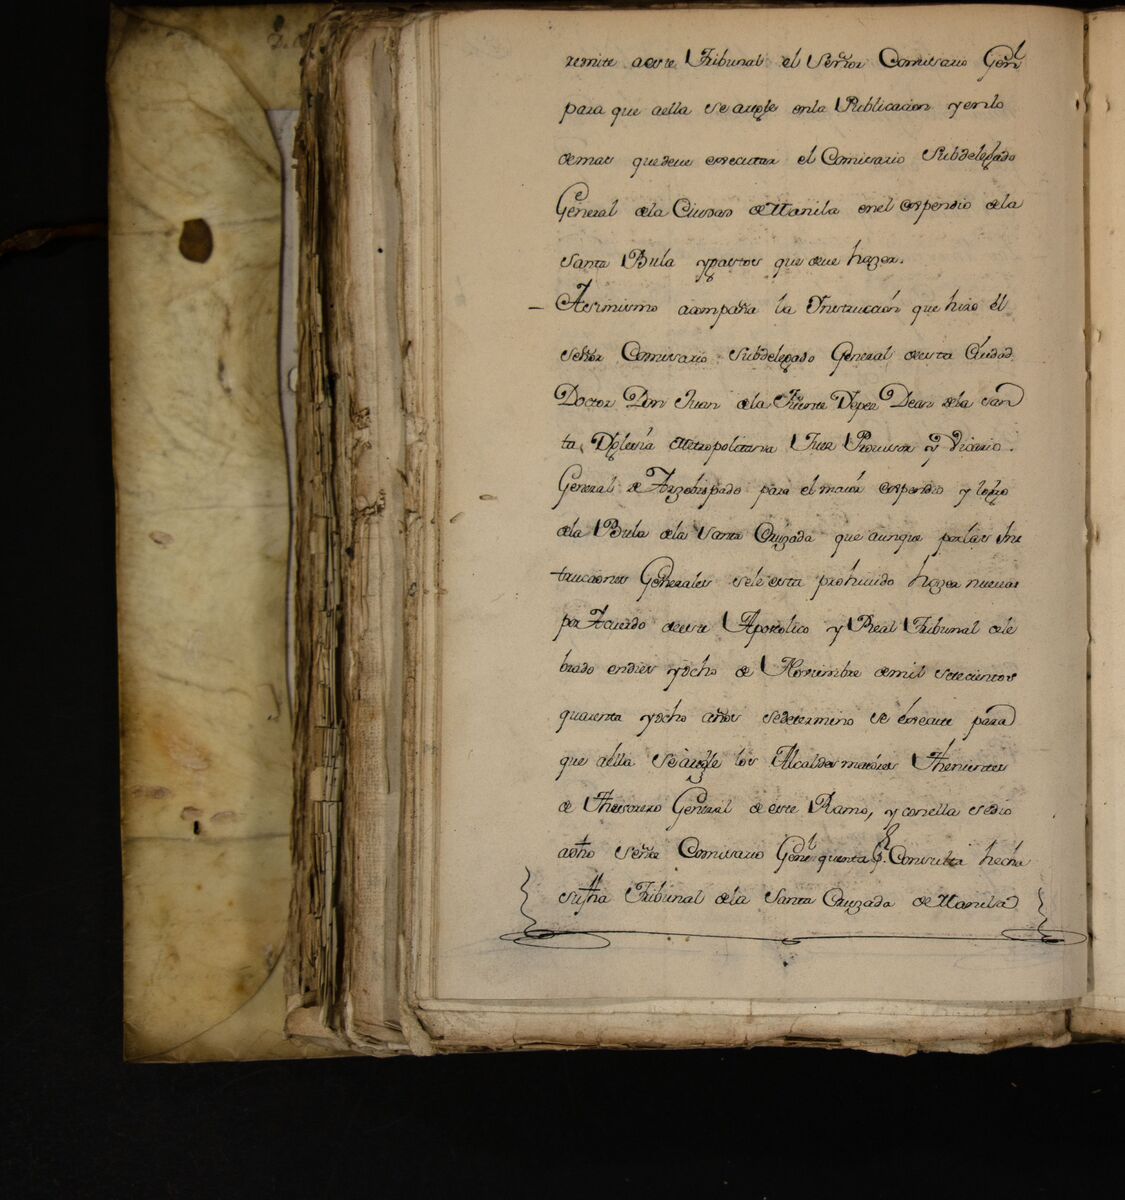 remite aeste Tribunal el Señor Comisario Genl
para que aella se aregle enla Publicacion y enlo
demas que deve executar el Comisario Subdelegado
General dela Ciudad de Manila enel expendio dela
Santa Bula y gastos que deve hazer.
– Assimismo acompaña la Ynstruccion que hizo el
señor Comisario Subdelegado General deesta Ciudad
Doctor Don Juan dela Fuente Yepez Dean dela San
ta Yglesia Metropolitana Juez Provisor y Vicario
General de Arzobispado para el maior expendio y
dela Bula dela Santa Cruzada que aunque porlas Ins
trucciones Generales sele esta prohivido hazer nuevas
por Acuerdo deeste Apostolico y Real Tribunal cele
brado endiez y ocho de Noviembre demil setecientos
quarenta y ocho años sedetermino se execute para
que aella se aregle los Alcaldes maiores Thenientes
de Thesorero General de este Ramo, y conella sedio
adho señor Comisario Genl quenta pr. Consulta hecha
Tribunal dela Santa Cruzada de Manila